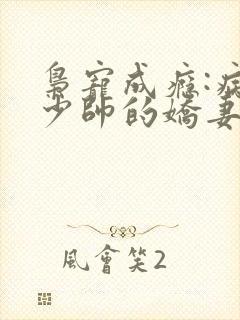 梟寵成癮:病
少帥的嬌妻
風會笑2